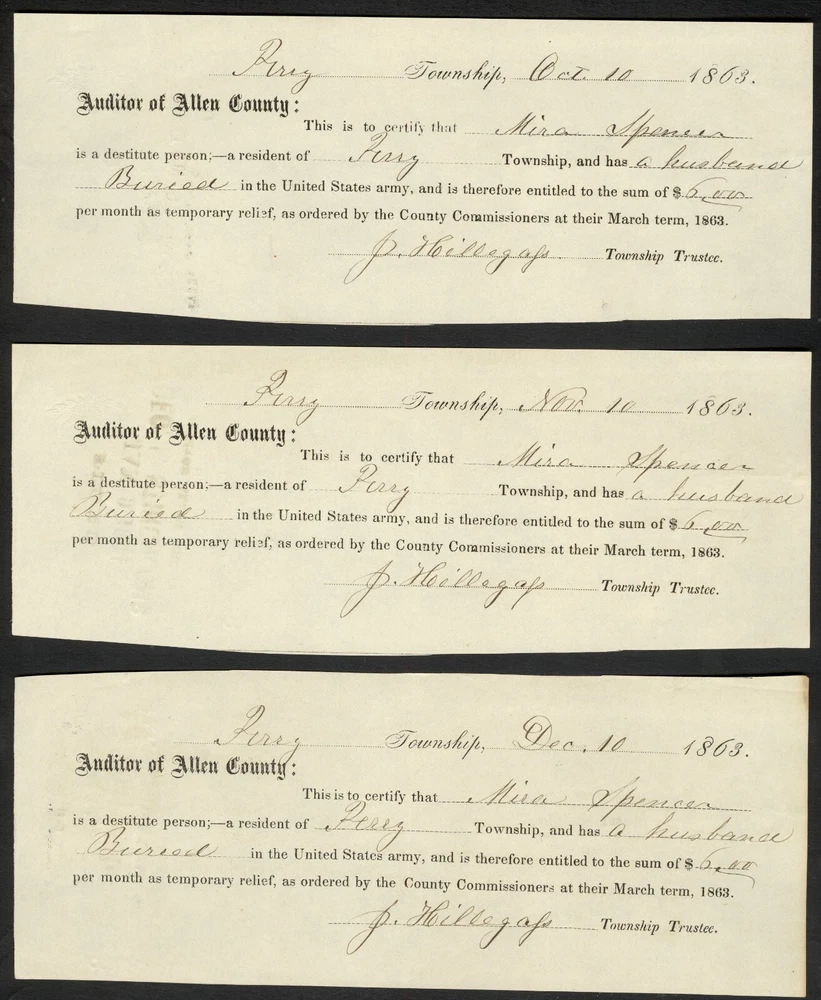 Perry Township, Oct 10 1863.
Auditor of Allen County:
This is to certify that Mira Spencer
is a destitute person;—a resident of Perry Township, and has a husband
Buried in the United States army, and is therefore entitled to the sum of $ 6,00
per month as temporary relief, as ordered by the County Commissioners at their March term, 1863.
J. Hillegass Township Trustee.
Perry Township, Nov. 10 1863.
Auditor of Allen County:
This is to certify that Mira Spencer
is a destitute person;—a resident of Perry Township, and has a husband
Buried in the United States army, and is therefore entitled to the sum of $ 6,00
per month as temporary relief, as ordered by the County Commissioners at their March term, 1863.
J. Hillegass Township Trustee.
Perry Township, Dec. 10 1863.
Auditor of Allen County:
This is to certify that Mira Spencer
is a destitute person;—a resident of Perry Township, and has a husband
Buried in the United States army, and is therefore entitled to the sum of $ 6,00
per month as temporary relief, as ordered by the County Commissioners at their March term, 1863.
J. Hillegass Township Trustee.